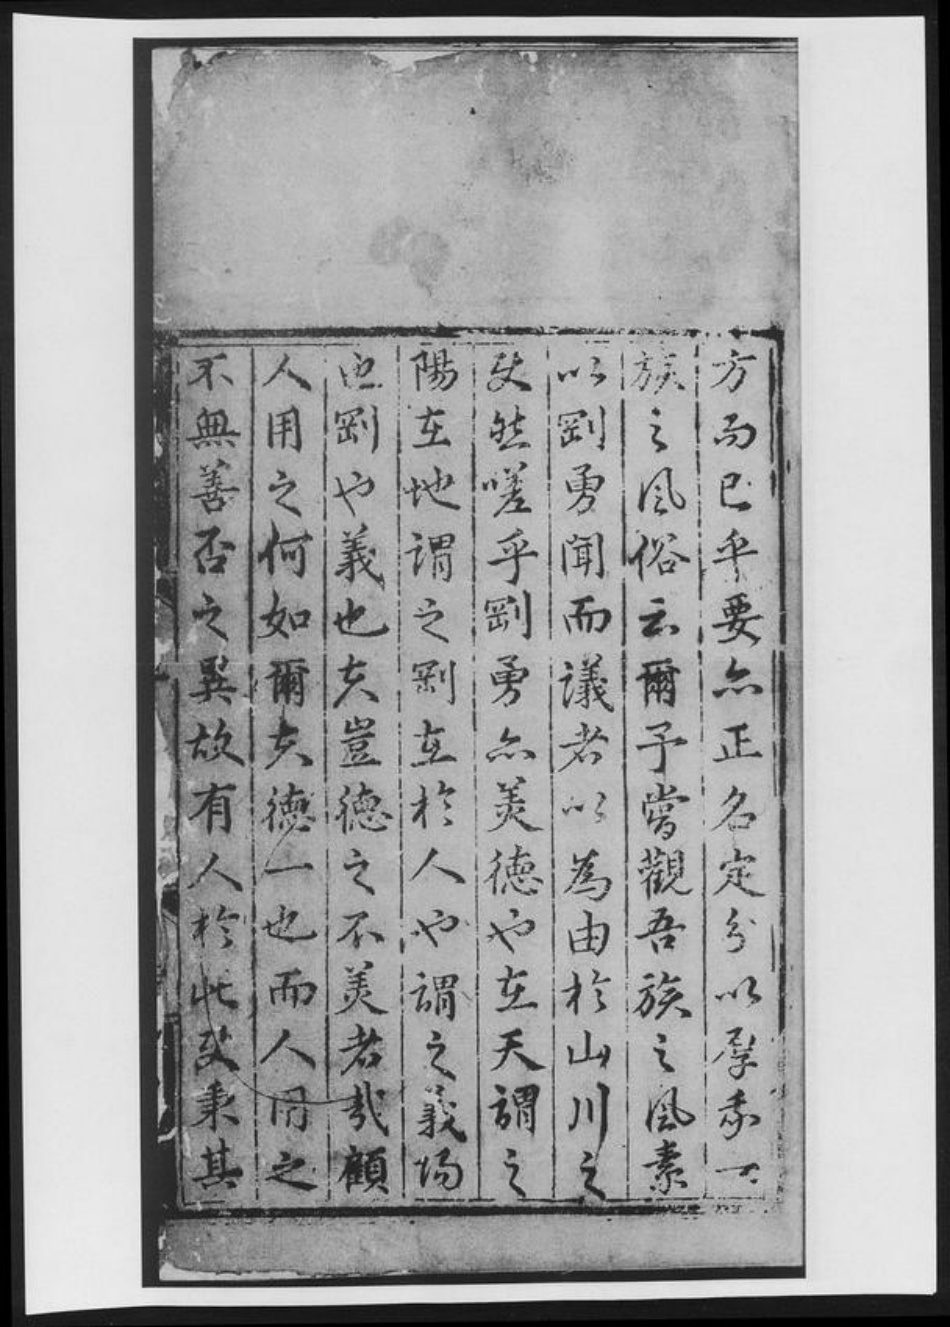 方而已乎要亦正名定分以厚我一
族之風俗云爾予嘗觀吾族之風素
以剛勇聞而議者以為由於山川之
使然嗟乎剛勇亦美德也在天謂之
陽在地謂之剛在於人也謂之義陽
也剛也義也夫豈德之不美者哉顧
人用之何如爾夫德一也而人用之
不無善否之異故有人於此使秉其